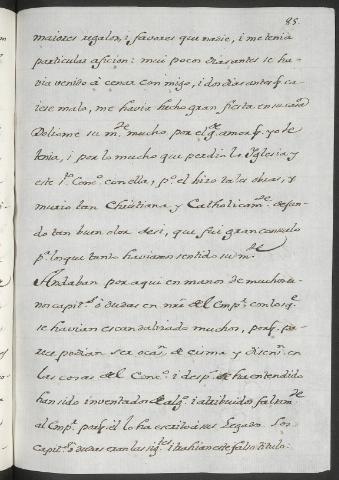 85.
maiores regalos, i favores que nadie, i me tenia
particular aficion: mui pocos dias antes se ha-
via venido à cenar con migo, i dos dias antes q̃ ca-
iese malo, me havia hecho gran fiesta en su casa
Doliome su m.te mucho por el g.e amor q̃ yo le
tenia, i por lo mucho que perdió la Iglesia y
este S.to Conc.o con ella, p.o el hizo tales obras, y
murio tan Christiana y Catholicam.te dejan-
do tan buen olor de si, que fuè gran consuelo
p.a los que tanto haviamos sentido su m.te
Andaban por aqui en manos de muchos u-
nos capit.s ò dudas en nre del Emp.r con los q.e
se havian escandalizado muchos, porq̃ pa-
rec podian ser ocas.n de cisma y disens.n en
las cosas del Conc.o i desp.s se ha entendido
han sido inventados de alg.s i atribuidos falsam.te
al Emp.r porq̃ él lo ha escrito à sus Legados. Los
capit.s ò dudas eran las sig.tes i trahian este falso titulo: